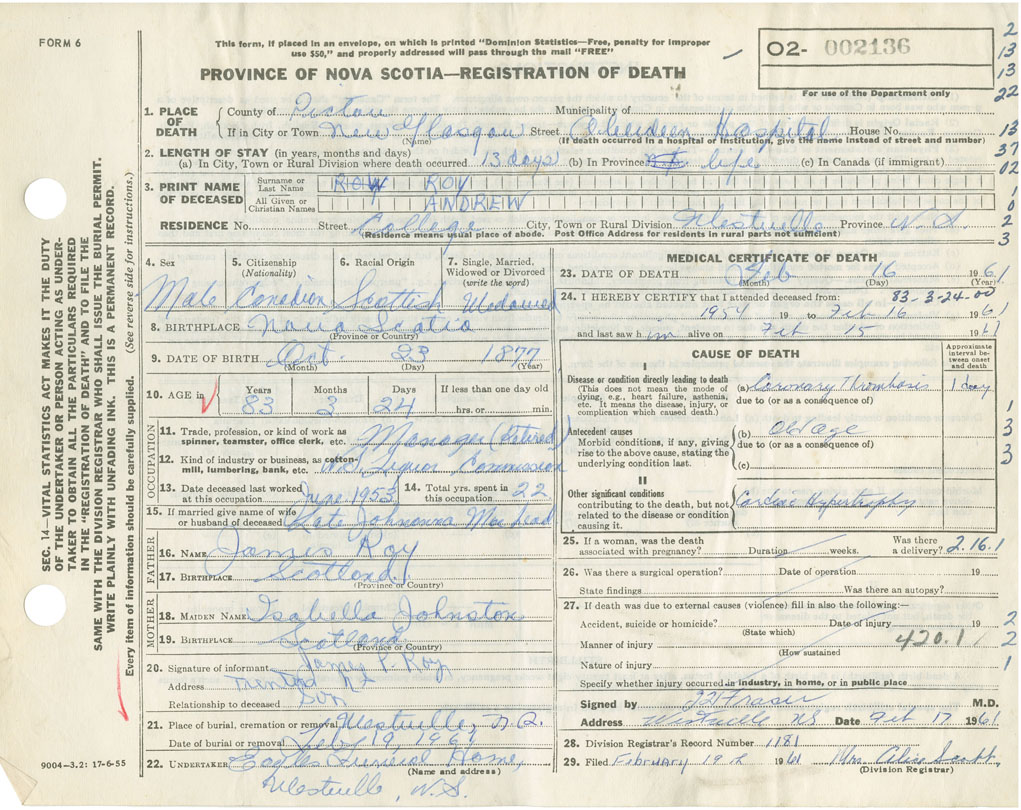 FORM 6
This form, if placed in an envelope, on which is printed "Dominion Statistics—Free, penalty for improper
use $50," and properly addressed will pass through the mail "FREE"
PROVINCE OF NOVA SCOTIA—REGISTRATION OF DEATH
02- 002136
For use of the Department only
2
13
13
22
13
37
02
1
0
2
3
1. PLACE OF DEATH
County of Pictou Municipality of
If in City or Town New Glasgow Street Aberdeen Hospital House No.
(Name) (If death occurred in a hospital or institution, give the name instead of street and number)
2. LENGTH OF STAY (in years, months and days)
(a) In City, Town or Rural Division where death occurred 13 days (b) In Province life (c) In Canada (if immigrant)
3. PRINT NAME OF DECEASED
Surname or Last Name ROW ROY
All Given or Christian Names ANDREW
RESIDENCE No. Street College City, Town or Rural Division Westville Province N.S.
(Residence means usual place of abode. Post Office Address for residents in rural parts not sufficient)
4. Sex 5. Citizenship (Nationality) 6. Racial Origin 7. Single, Married, Widowed or Divorced (write the word)
Male Canadian Scottish Widowed
8. BIRTHPLACE Nova Scotia
(Province or Country)
9. DATE OF BIRTH Oct. 23 1877
(Month) (Day) (Year)
10. AGE in Years Months Days If less than one day old
83 3 24 hrs. or min.
OCCUPATION
11. Trade, profession, or kind of work as spinner, teamster, office clerk, etc. Manager (Retired)
12. Kind of industry or business, as cotton-mill, lumbering, bank, etc. N.S. Liquor Commission
13. Date deceased last worked at this occupation June 1953 14. Total yrs. spent in this occupation 22
15. If married give name of wife or husband of deceased Kate Johnanna
FATHER
16. NAME James Roy
17. BIRTHPLACE Scotland
(Province or Country)
MOTHER
18. MAIDEN NAME Isabella Johnston
19. BIRTHPLACE Scotland
(Province or Country)
20. Signature of informant James P. Roy
Address Trenton N.S.
Relationship to deceased Son
21. Place of burial, cremation or removal Westville,
Date of burial or removal Feb. 19, 1961
22. UNDERTAKER Eagles Funeral Home,
(Name and address)
Westville, N.S.
MEDICAL CERTIFICATE OF DEATH
23. DATE OF DEATH Feb 16 1961
(Month) (Day) (Year)
24. I HEREBY CERTIFY that I attended deceased from: 83-3-24-00
1954 19 to Feb 16 1961
and last saw him alive on Feb 15 1961
CAUSE OF DEATH
Approximate interval between onset and death
I
Disease or condition directly leading to death
(This does not mean the mode of dying, e.g., heart failure, asthenia, etc. It means the disease, injury, or complication which caused death.)
(a) Coronary Thrombosis 1 day
due to (or as a consequence of)
Antecedent causes
Morbid conditions, if any, giving rise to the above cause, stating the underlying condition last.
(b) Old age
due to (or as a consequence of)
(c)
1
3
3
II
Other significant conditions
contributing to the death, but not related to the disease or condition causing it.
Cardiac Hypertrophy
25. If a woman, was the death associated with pregnancy? Duration weeks. Was there a delivery? 2.16.1
26. Was there a surgical operation? Date of operation 19
State findings Was there an autopsy?
27. If death was due to external causes (violence) fill in also the following:—
Accident, suicide or homicide? Date of injury 19 2
(State which)
Manner of injury 420.1 2
(How sustained)
Nature of injury 1
Specify whether injury occurred in industry, in home, or in public place
Signed by Fraser M.D.
Address Westville NS Date Feb 17 1961
28. Division Registrar's Record Number 1181
29. Filed February 19th 1961 Mrs. Alice Scott
(Division Registrar)
SEC. 14—VITAL STATISTICS ACT MAKES IT THE DUTY
OF THE UNDERTAKER OR PERSON ACTING AS UNDER-
TAKER TO OBTAIN ALL THE PARTICULARS REQUIRED
IN THE "REGISTRATION OF DEATH" AND TO FILE THE
SAME WITH THE DIVISION REGISTRAR WHO SHALL ISSUE THE BURIAL PERMIT.
WRITE PLAINLY WITH UNFADING INK. THIS IS A PERMANENT RECORD.
Every item of information should be carefully supplied. (See reverse side for instructions.)
9004—3.2: 17-6-55